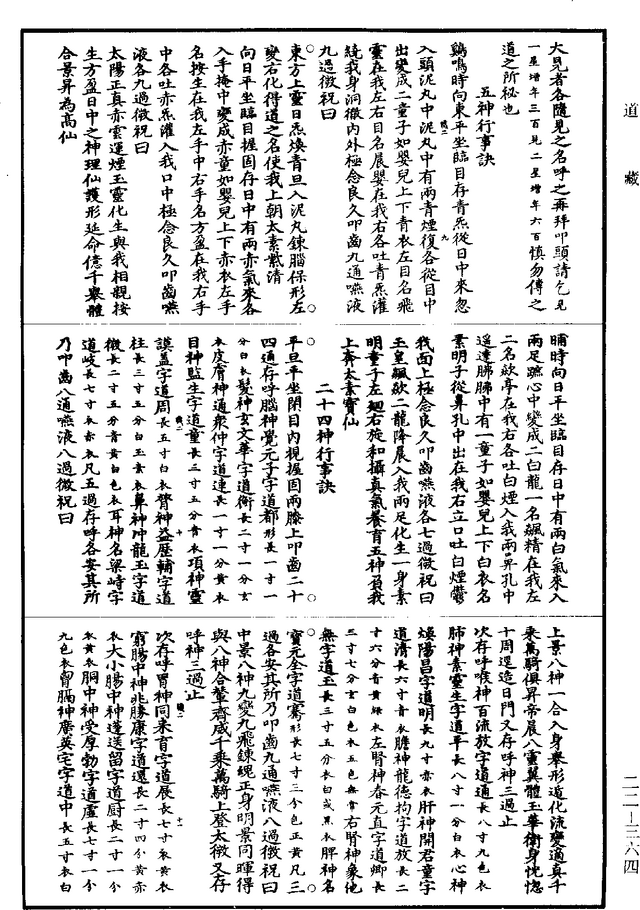 道藏
大見者各隨見之名呼之再拜叩頭請乞見
一星增年三百見二星增年六百慎勿傳之
道之所秘也
五神行事訣
鷄鳴時向東平坐臨目存青炁從日中來忽
入頭泥丸中泥丸中有兩青煙復各從目中
出變成二童子如嬰兒上下青衣左目名飛
靈在我左右目名晨嬰在我右各吐青炁灌
繞我身洞徹內外極念良久叩齒九通嚥液
九過微祝曰
東方上靈日炁煥青旦入泥丸鍊腦保形左
變右化得道之名使我上朝太素黻清
向日平坐臨目握固存日中有兩赤氣來各
入手掩中變成赤童如嬰兒上下赤衣左手
名按生在我左手中右手名方盈在我右手
中各吐赤炁灌入我口中極念良久叩齒嚥
液各九過微祝曰
太陽正真赤雲運煙玉靈化生與我相親按
生方盈日中之神理仙護形延命億千舉體
合景昇為高仙
晡時向日平坐臨目存日中有兩白氣來入
兩足蹠心中變成二白龍一名飆精在我左
二名欻亭在我右各吐白煙入我兩鼻孔中
遥達肺肺中有一童子如嬰兒上下白衣名
素明子從鼻孔中出在我右立口吐白煙鬱
我面上極念良久叩齒嚥液各七過微祝曰
玉皇飆欻二龍降晨入我兩足化生一身素
明童子左廻右旋和攝真氣養育五神負我
上奔太素寶仙
二十四神行事訣
平旦平坐閉目內視握固兩膝上叩齒二十
四通存呼腦神覺元子字道都形長一寸一
分白衣髮神玄文華字道衡長二寸一分玄
衣皮膚神通衆仲字道連長一寸一分黃衣
目神監生字道童長三寸五分青衣項神靈
謨蓋字道周長五寸白衣膂神益歷輔字道
柱長三寸五分白玉素衣鼻神冲龍玉字道
微長二寸五分青黃白色衣耳神名梁峙字
道岐長七寸赤衣凡五過存呼各安其所
乃叩齒八通嚥液八過微祝曰
上景八神一合入身舉形道化流變適真千
乘萬騎俱昇帝晨八靈翼體玉華衛身恍惚
十周逕造日門又存呼神三過止
次存呼喉神百流放字道通長八寸九色衣
肺神素靈生字道平長八寸一分白衣心神
煥陽昌字道明長九寸赤衣肝神開君童字
道清長六寸青衣膽神龍德拘字道放長二
寸六分青黃綠衣左腎神春元直字道卿長
三寸七分玄白色衣五色無常右腎神象他
無字道玉長三寸五分衣白或黑衣脾神名
寶元全字道騫形長七寸三分色正黃凡三
過各安其所乃叩齒九通嚥液八過微祝曰
中景八神九變九飛鍊魂正身明景同暉得
與八神合輦齊威千乘萬騎上登太微又存
呼神三過止
次存呼胃神同來育字道展長七寸黃衣
窮腸中神兆滕康字道還長二寸四分黃赤
衣大小腸中神蓬送留字道厨長二寸一分
衣黃衣胴中神受厚勃字道虛長七寸一分
九色衣胃膈神廣英宅字道中長五寸衣白
二二—三六四